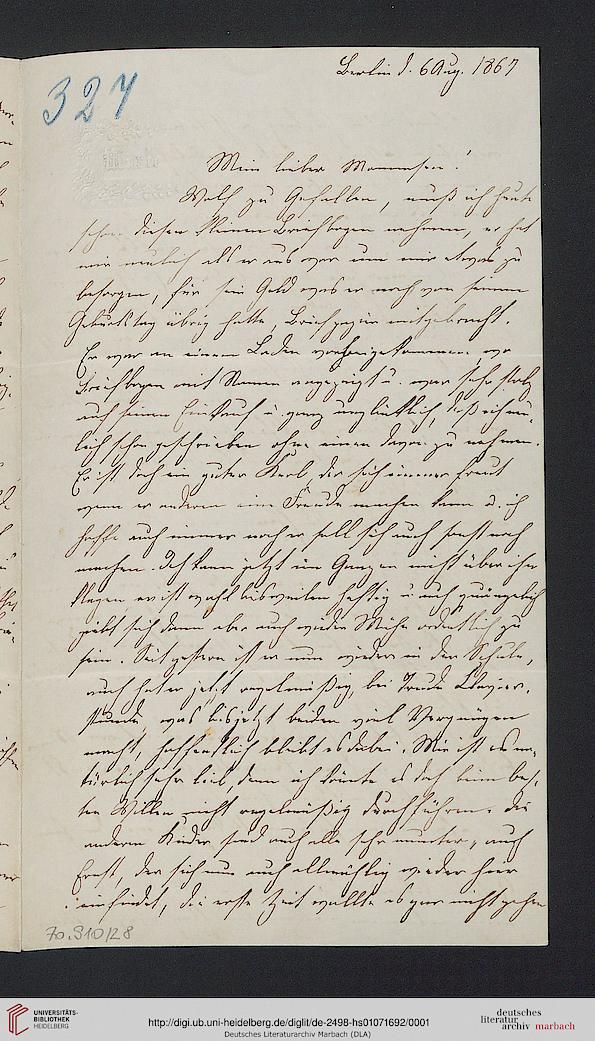 327
Berlin d. 6 Aug. 1867
Mein lieber Mommsen!
Wolf zu Gefallen, muß ich heute
schon diesen kleinen Briefbogen nehmen, er hat
mir neulich als er aus war um mir etwas zu
besorgen, für sein Geld was er noch von seinem
Geburtstag übrig hatte, Briefpapier mitgebracht.
Er war an einem Laden vorbeigekommen wo
Briefbogen mit Namen angezeigt u. war sehr stolz
auf seinen Einkauf u. ganz unglücklich, daß ich neu-
lich schon geschrieben ohne einen davon zu nehmen.
Er ist doch ein guter Kerl, der sich immer freut
wenn er anderen eine Freude machen kann u. ich
hoffe auch immer noch er soll sich auch sonst noch
machen. Ich kann jetzt im Ganzen nicht über ihn
klagen, er ist wohl bisweilen heftig u. auch
giebt sich dann aber auch wieder Mühe ordentlich zu
sein. Seit gestern ist er nun wieder in der Schule,
auch hat er jetzt regelmäßig bei Trude Clavier-
stunde, was bis jetzt beiden viel Vergnügen
macht, hoffentlich bleibt es dabei. Mir ist es na-
türlich sehr lieb, denn ich könnte es doch beim bes-
ten Willen nicht regelmäßig durchführen. Die
anderen Kinder sind auch alle sehr munter, auch
Ernst, der sich nun auch allmählig wieder hier
einfindet, die erste Zeit wollte es gar nicht gehen
70.910/28
UNIVERSITÄTS-
BIBLIOTHEK
HEIDELBERG
http://digi.ub.uni-heidelberg.de/diglit/de-2498-hs01071692/0001
Deutsches Literaturarchiv Marbach (DLA)
deutsches
literatur
archiv marbach